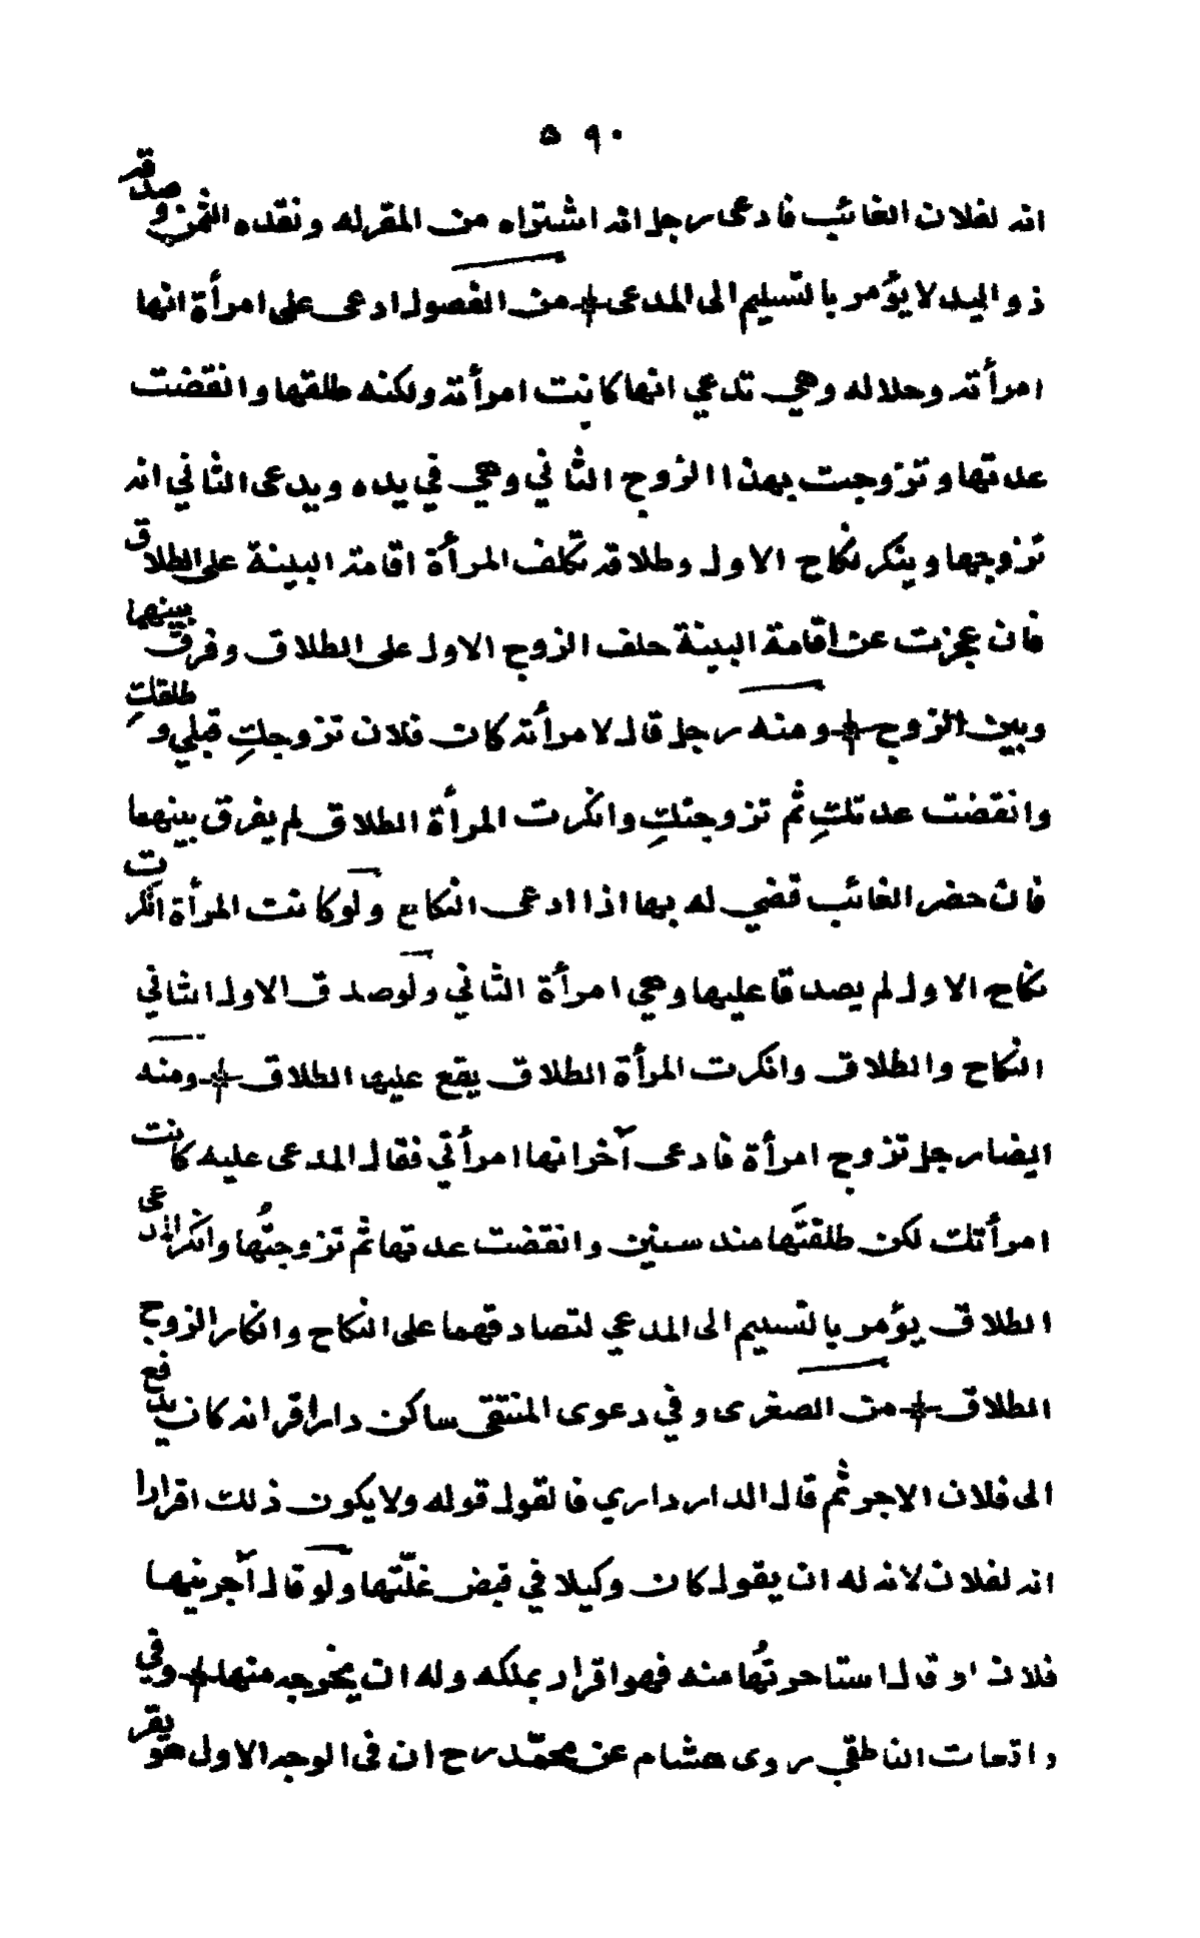 ٥٩٠
انه لفلان الغائب فادعى رجل انه اشتراه من المقر له ونقده الثمن وصدقه
ذو اليد لا يؤمر بالتسليم الى المدعى من الفصول ادعى على امرأة انها
امرأته وحلاله وهي تدعي انها كانت امرأته ولكنه طلقها وانقضت
عدتها وتزوجت بهذا الزوج الثاني وهي في يده ويدعى الثاني انه
تزوجها وينكر نكاح الاول وطلاقه تكلف المرأة اقامة البينة على الطلاق
فان عجزت عن اقامة البينة حلف الزوج الاول على الطلاق وفرق بينهما
وبين الزوج ومنه رجل قال لامرأته كان فلان تزوجكِ قبلي وطلقكِ
وانقضت عدتكِ ثم تزوجتكِ وانكرت المرأة الطلاق لم يفرق بينهما
فان حضر الغائب قضي له بها اذا ادعى النكاح ولو كانت المرأة انكرت
نكاح الاول لم يصدقا عليها وهي امرأة الثاني ولو صدق الاول الثاني
النكاح والطلاق وانكرت المرأة الطلاق يقع عليها الطلاق ومنه
ايضا رجل تزوج امرأة فادعى آخر انها امرأتي فقال المدعى عليه كانت
امرأتك لكن طلقتَها منذ سنين وانقضت عدتها ثم تزوجتُها وانكر المدعى
الطلاق يؤمر بالتسليم الى المدعي لتصادقهما على النكاح وانكار الزوج
الطلاق من الصغرى وفي دعوى المنتقى ساكن دار اقر انه كان يدفع
الى فلان الاجر ثم قال الدار داري فالقول قوله ولا يكون ذلك اقرارا
انه لفلان لانه له ان يقول كان وكيلا في قبض غلّتها ولو قال آجرنيها
فلان او قال استاجرتُها منه فهو اقرار بملكه وله ان يخرجه منها وفي
واقعات الناطقي روى هشام عن محمّد رح ان فى الوجه الاول هو يقر